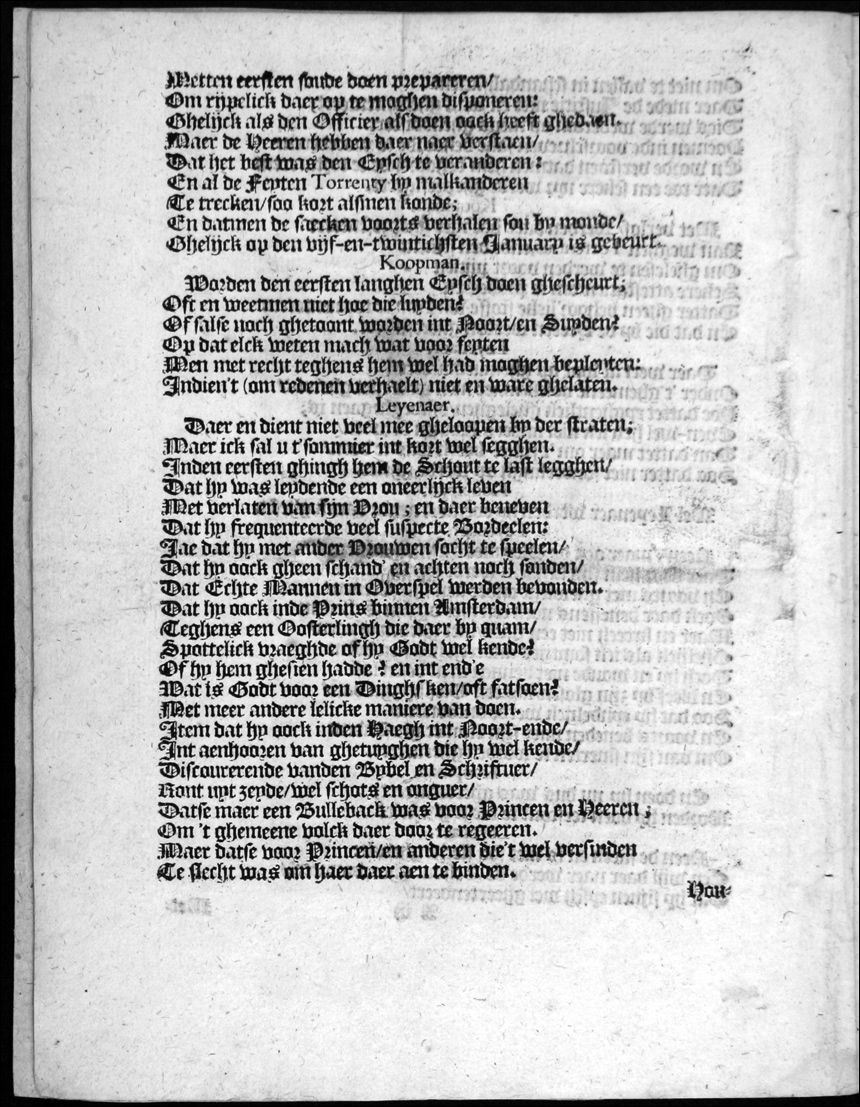 Metten eersten soude doen prepareren/
Om rijpelick daer op te moghen disponeren:
Ghelijck als den Officier als doen oock heeft ghedaen.
Maer de Heeren hebben daer naer verstaen/
Dat het best was den Eysch te veranderen:
En al de Feyten Torrenty by malkanderen
Te trecken/soo kort alsmen konde;
En datmen de saecken voorts verhalen sou by monde/
Ghelijck op den vijf-en-twintichsten January is gebeurt.
Koopman.
Worden den eersten langhen Eysch doen ghescheurt;
Oft en weetmen niet hoe die luyden?
Of salse noch ghetoont worden int Noort/en Suyden?
Op dat elck weten mach wat voor feyten
Men met recht teghens hem wel had moghen bepleyten:
Indien't (om redenen verhaelt) niet en ware ghelaten.
Leyenaer.
Daer en dient niet veel mee gheloopen by der straten;
Maer ick sal u t'sommier int kort wel segghen.
Inden eersten ghingh hem de Schout te last legghen/
Dat hy was leydende een oneerlijck leven
Met verlaten van sijn Vrou; en daer beneven
Dat hy frequenteerde veel suspecte Bordeelen:
Jae dat hy met ander Vrouwen socht te speelen/
Dat hy oock gheen schand' en achten noch sonden/
Dat Echte Mannen in Overspel werden bevonden.
Dat hy oock inde Prins binnen Amsterdam/
Teghens een Oosterlingh die daer by quam/
Spottelick vraeghde of hy Godt wel kende?
Of hy hem ghesien hadde? en int end'e
Wat is Godt voor een Dinghsken/oft fatsoen?
Met meer andere lelicke maniere van doen.
Item dat hy oock inden Haegh int Noort-ende/
Int aenhooren van ghetuyghen die hy wel kende/
Discourerende vanden Bybel en Schriftuer/
Ront uyt zeyde/wel schots en onguer/
Datse maer een Bulleback was voor Princen en Heeren;
Om 't ghemeene volck daer door te regeeren.
Maer datse voor Princen/en anderen die't wel versinden
Te slecht was om haer daer aen te binden.
Hou-